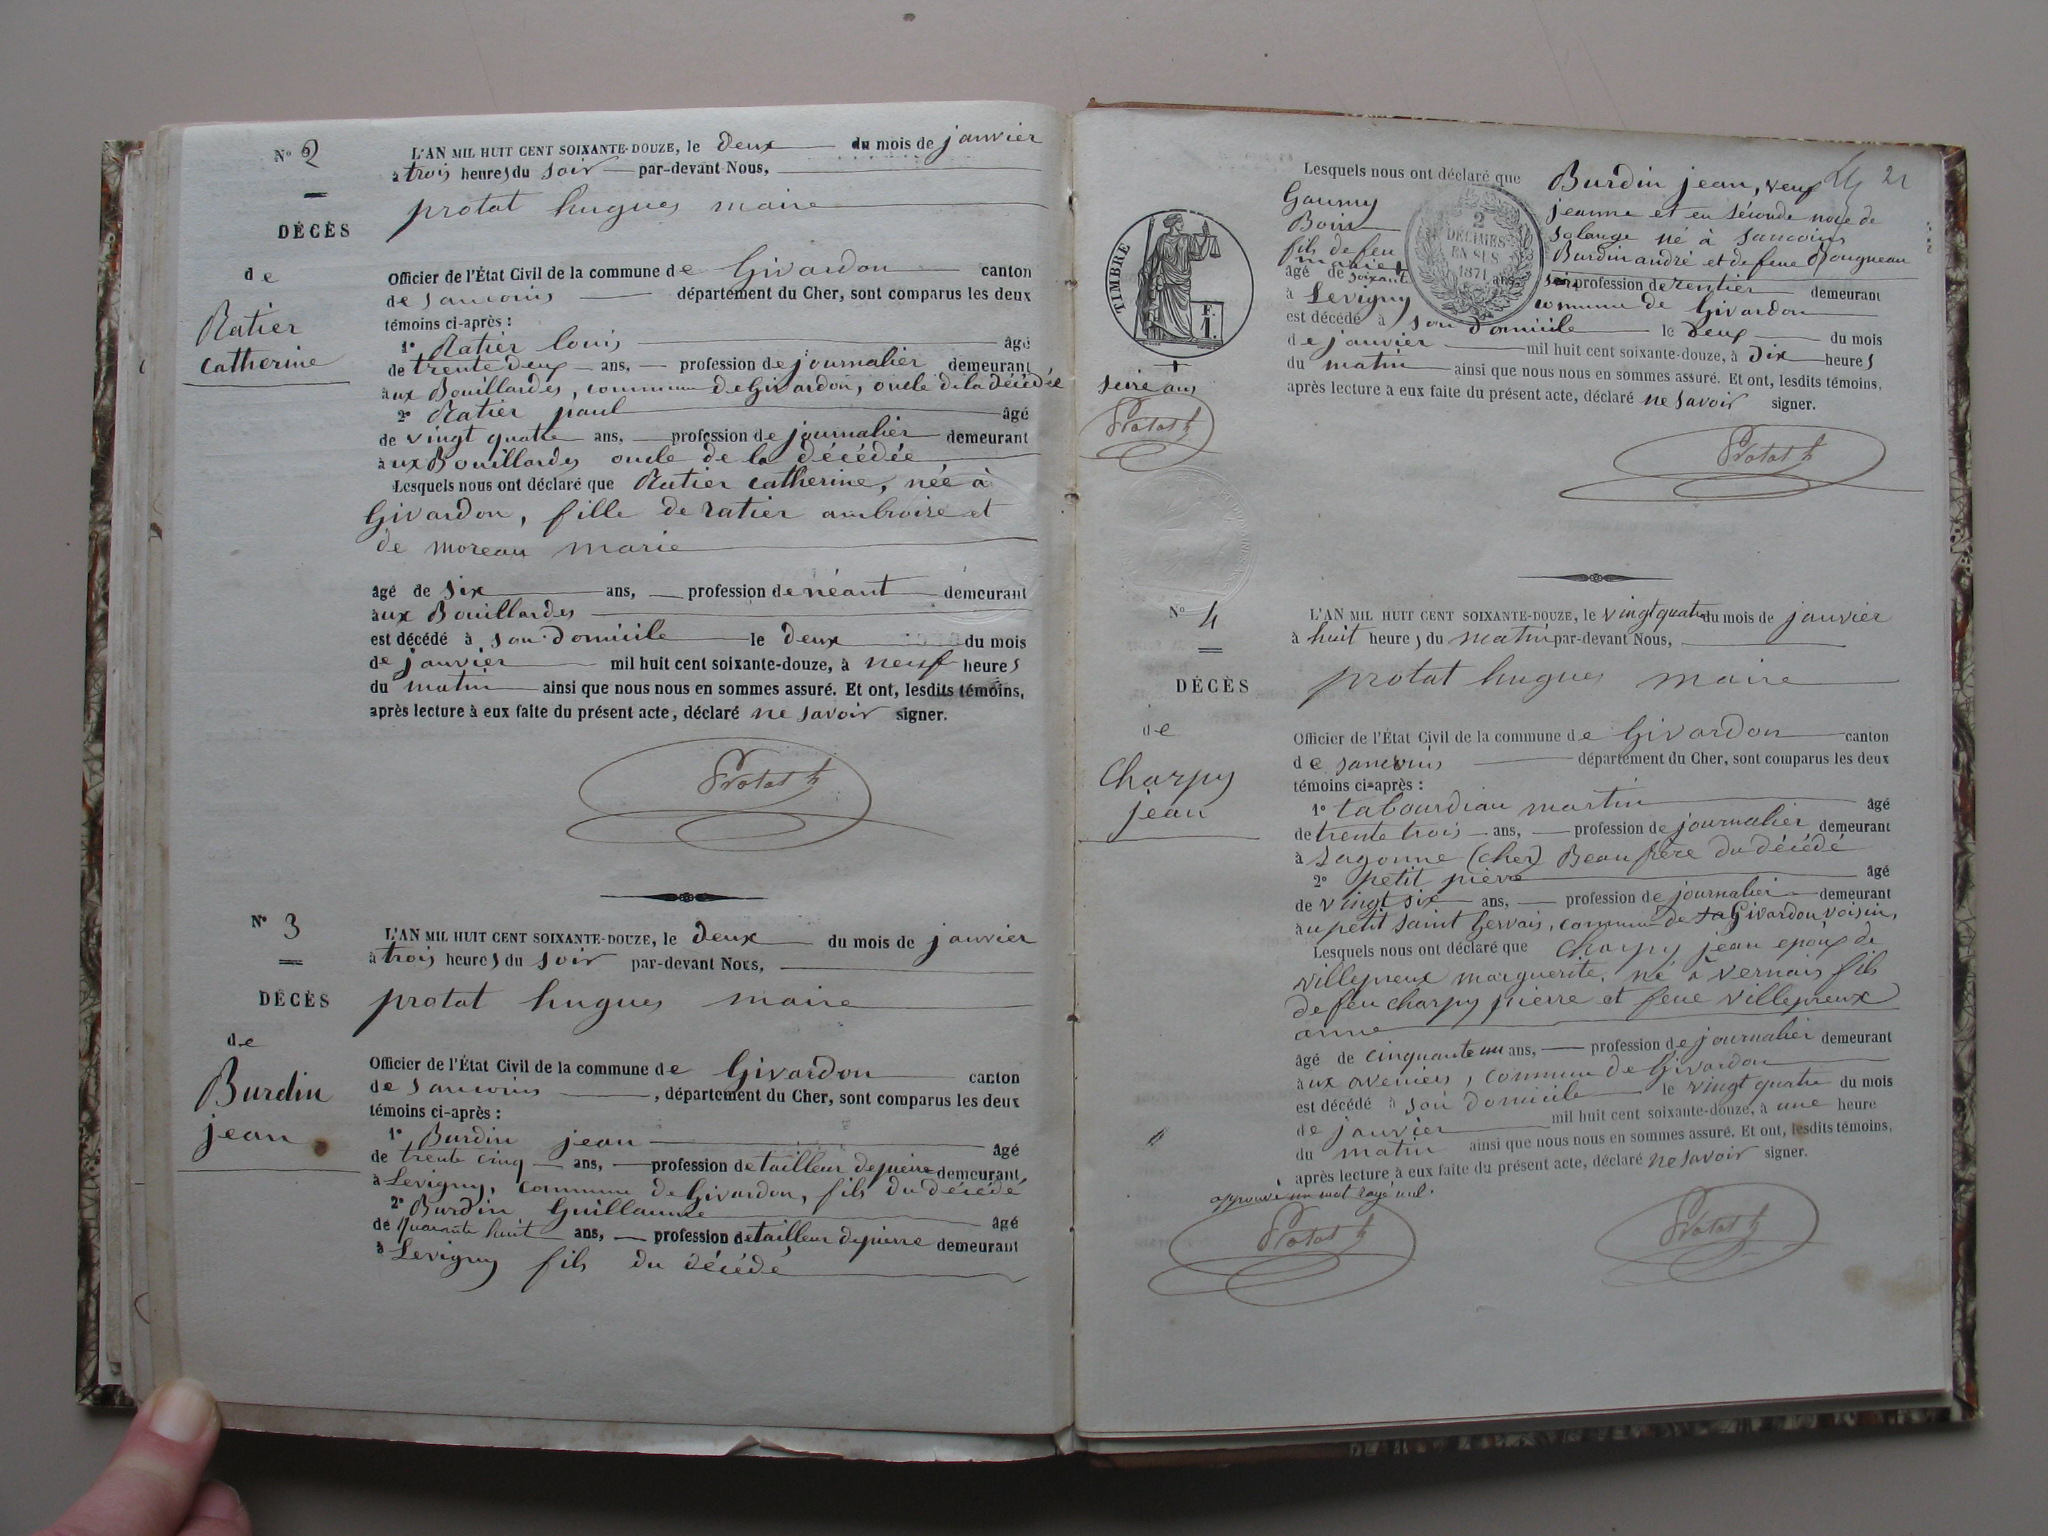 N° 2
DÉCÈS
de
Ratier
catherine
L'AN MIL HUIT CENT SOIXANTE-DOUZE, le deux du mois de janvier
à trois heures du soir par-devant Nous,
protat hugues maire
Officier de l'État Civil de la commune de Givardon canton
de sancoins département du Cher, sont comparus les deux
témoins ci-après :
1° Ratier louis âgé
de trente deux ans, profession de journalier demeurant
aux Bouillardes, commune de Givardon, oncle de la décédée
2° Ratier paul âgé
de vingt quatre ans, profession de journalier demeurant
aux Bouillardes oncle de la décédée
Lesquels nous ont déclaré que Ratier catherine, née à
Givardon, fille de ratier ambroise et
de moreau marie
âgé de six ans, profession de néant demeurant
aux Bouillardes
est décédé à son domicile le deux du mois
de janvier mil huit cent soixante-douze, à neuf heures
du matin ainsi que nous nous en sommes assuré. Et ont, lesdits témoins,
après lecture à eux faite du présent acte, déclaré ne savoir signer.
Protat h
N° 3
DÉCÈS
de
Burdin
jean
L'AN MIL HUIT CENT SOIXANTE-DOUZE, le deux du mois de janvier
à trois heures du soir par-devant Nous,
protat hugues maire
Officier de l'État Civil de la commune de Givardon canton
de sancoins, département du Cher, sont comparus les deux
témoins ci-après :
1° Burdin jean âgé
de trente cinq ans, profession de tailleur de pierre demeurant
à Levigny, commune de Givardon, fils du décédé
2° Burdin Guillaume âgé
de quarante huit ans, profession de tailleur de pierre demeurant
à Levigny fils du décédé
21
Lesquels nous ont déclaré que Burdin jean, veuf
Gaumy jeanne et en séconde noce de
Boin solange né à sancoins
fils de feu Burdin andré et de feue Bougneau
marie
âgé de soixante ans profession de rentier demeurant
à Levigny commune de Givardon
est décédé à son domicile le deux du mois
de janvier mil huit cent soixante-douze, à dix heures
du matin ainsi que nous nous en sommes assuré. Et ont, lesdits témoins,
après lecture à eux faite du présent acte, déclaré ne savoir signer.
TIMBRE
1 F.
2
DÉCIMES
EN SUS
1871
seize ans
Protat h
Protat h
N° 4
DÉCÈS
de
Charpy
jean
L'AN MIL HUIT CENT SOIXANTE-DOUZE, le vingt quatre du mois de janvier
à huit heures du matin par-devant Nous,
protat hugues maire
Officier de l'État Civil de la commune de Givardon canton
de sancoins département du Cher, sont comparus les deux
témoins ci-après :
1° tabourdiau martin âgé
de trente trois ans, profession de journalier demeurant
à Sagonne (cher) Beau frère du décédé
2° petit pierre âgé
de vingt six ans, profession de journalier demeurant
au petit saint Gervais, commune de Givardon voisin,
Lesquels nous ont déclaré que Charpy jean epoux de
villepreux marguerite, né à vernais fils
de feu charpy pierre et feue villepreux
anne
âgé de cinquante un ans, profession de journalier demeurant
aux aveniers, commune de Givardon
est décédé à son domicile le vingt quatre du mois
de janvier mil huit cent soixante-douze, à une heure
du matin ainsi que nous nous en sommes assuré. Et ont, lesdits témoins,
après lecture à eux faite du présent acte, déclaré ne savoir signer.
approuvé un mot rayé nul.
Protat h
Protat h